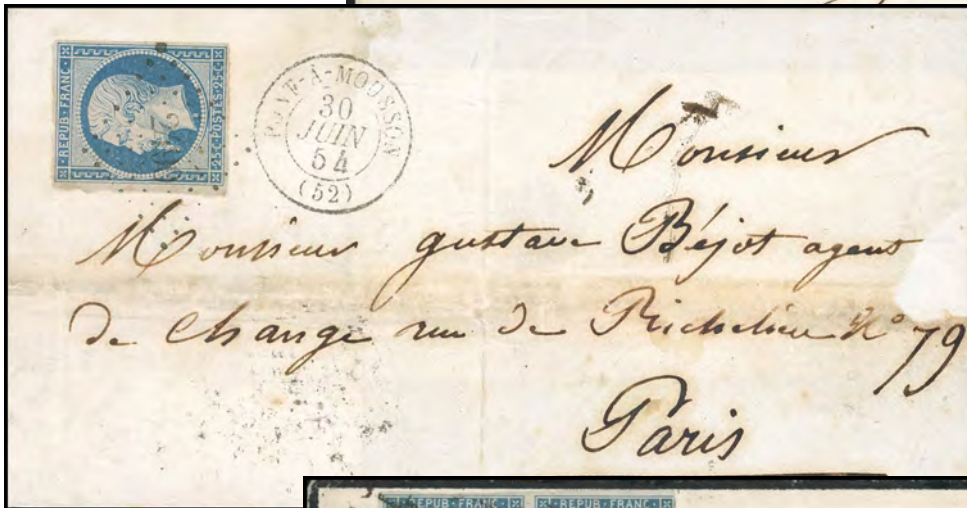 REPUB·FRANC·
25c·POSTES·25c
PONT-À-MOUSSON
30
JUIN
54
(52)
Monsieur
Monsieur gustave Béjot agent
de change rue de Richelieu N° 79
Paris
REPUB·FRANC· REPUB·FRANC·